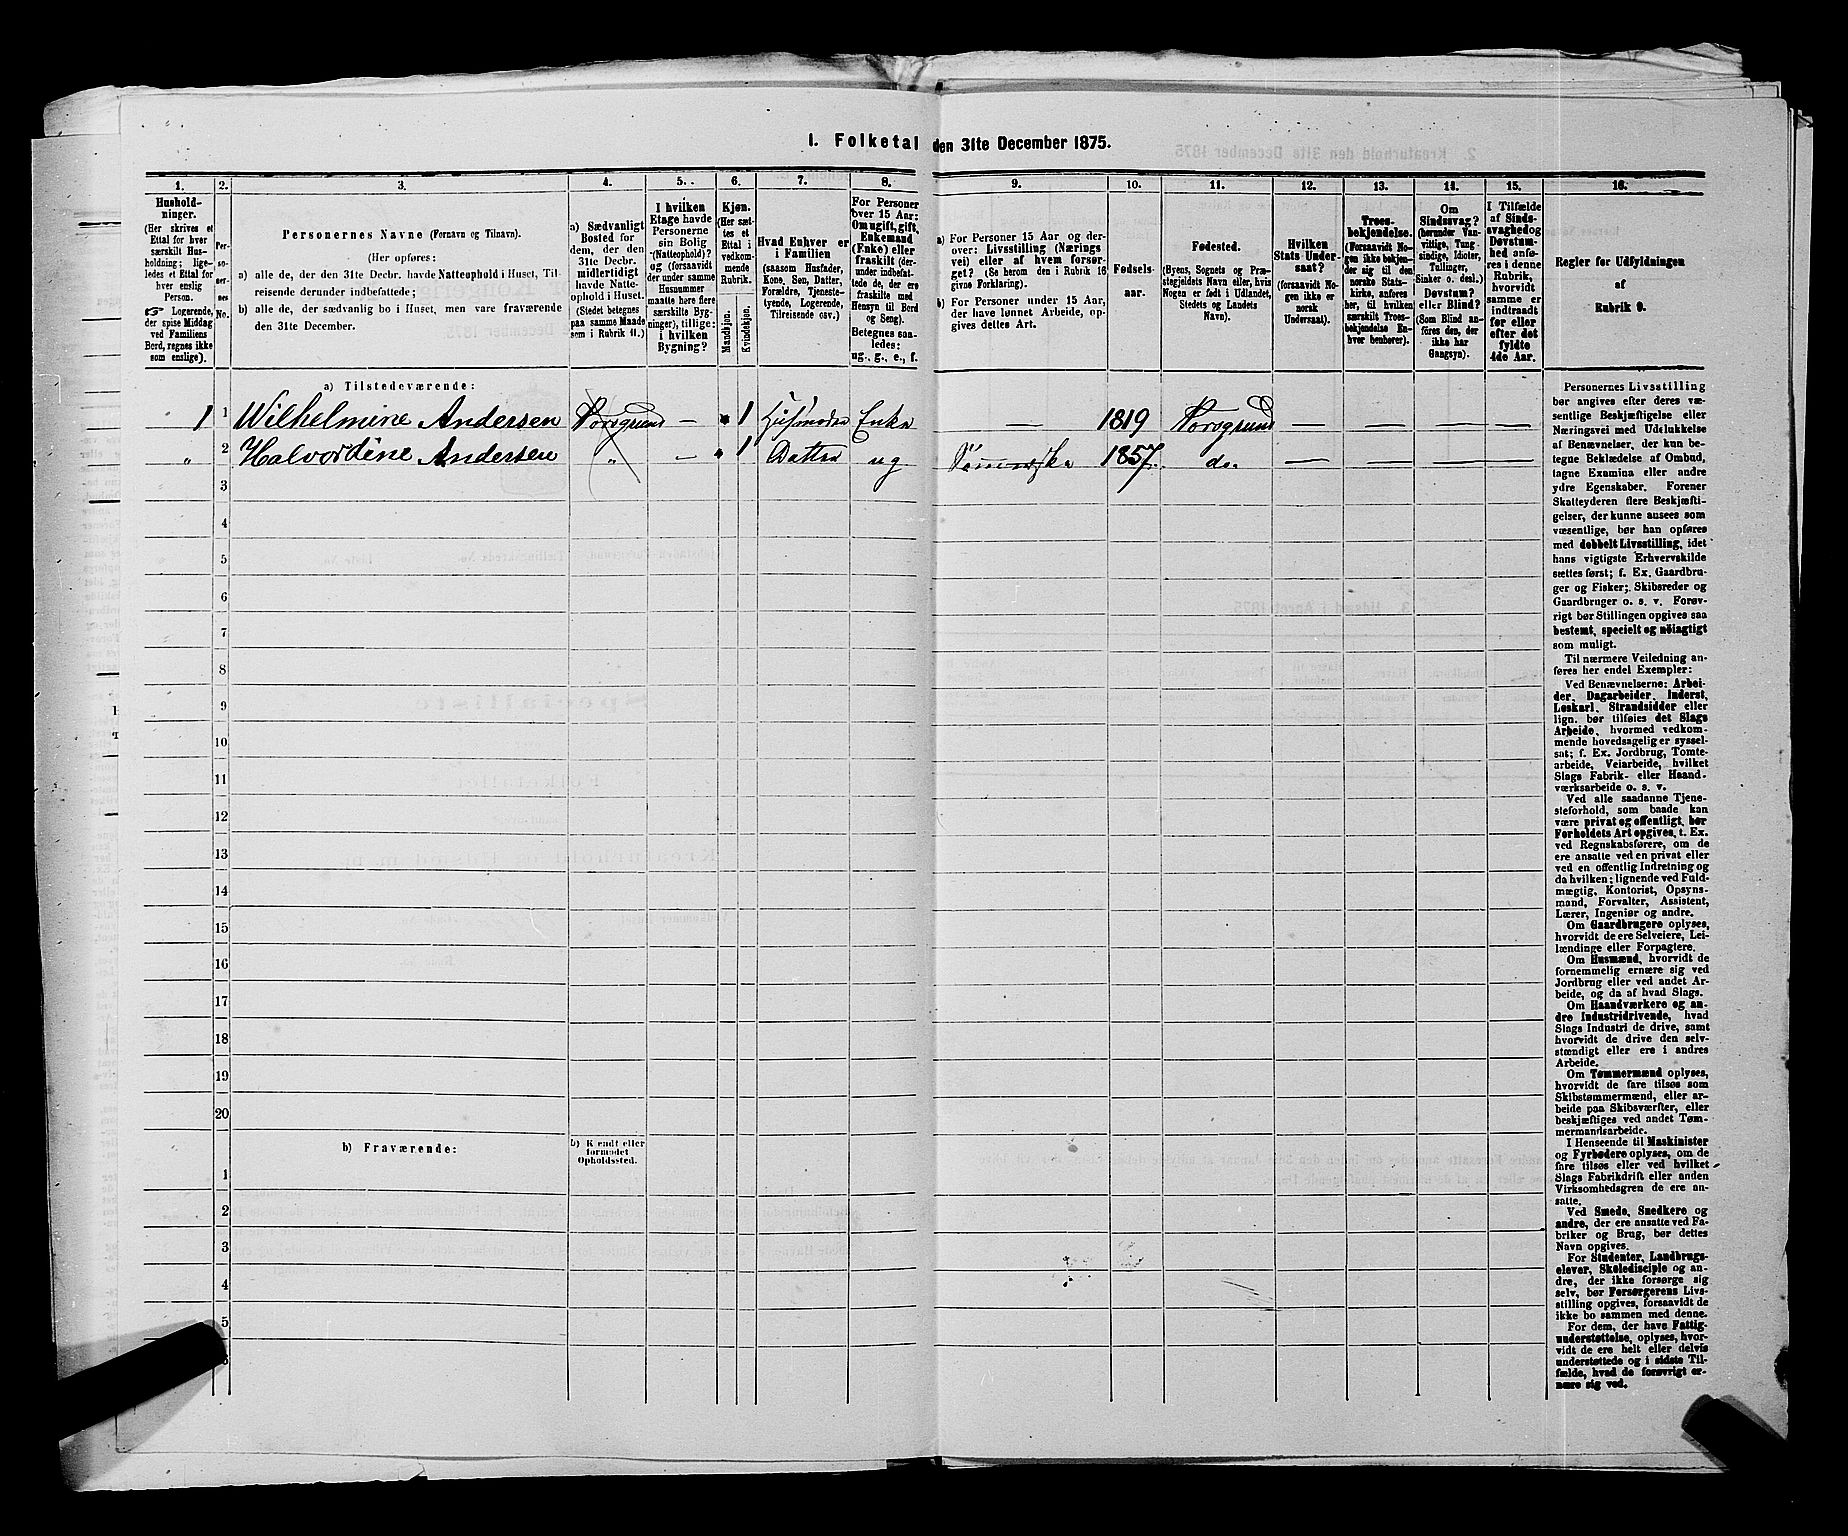 1. Folketal den 31te December 1875.
1. 2. 3. 4. 5. 6. 7. 8. 9. 10. 11. 12. 13. 14. 15. 16.
Hushold-
ninger.
(Her skrives et
Ettal for hver
særskilt Hus-
holdning; lige-
ledes et Ettal for
hver enslig
Person.
☞ Logerende,
der spise Middag
ved Familiens
Bord, regnes ikke
som enslige).
Per-
so-
ner-
nes
No.
Personernes Navne (Fornavn og Tilnavn).
(Her opføres:
a) alle de, der den 31te Decbr. havde Natteophold i Huset, Til-
reisende derunder indbefattede;
b) alle de, der sædvanlig bo i Huset, men vare fraværende
den 31te December.
a) Sædvanligt
Bosted for
dem, der den
31te Decbr.
midlertidigt
havde Natte-
ophold i Huset.
(Stedet betegnes
paa samme Maade
som i Rubrik 11.)
I hvilken
Etage havde
Personerne
sin Bolig
(Natteophold)?
og (forsaavidt
der under samme
Husnummer
maatte høre flere
særskilte Byg-
ninger), tillige:
i hvilken
Bygning?
Kjøn.
(Her sæt-
tes et
Ettal i
vedkom-
mende
Rubrik.
Mandkjøn.
Kvindekjøn.
Hvad Enhver er
i Familien
(saasom Husfader,
Kone, Søn, Datter,
Forældre, Tjeneste-
tyende, Logerende,
Tilreisende osv.)
For Personer
over 15 Aar:
Om ugift, gift,
Enkemand
(Enke) eller
fraskilt (der-
under indbefat-
tede de, der ere
fraskilte med
Hensyn til Bord
og Seng).
Betegnes saa-
ledes:
ug., g., e., f.
a) For Personer 15 Aar og der-
over: Livsstilling (Nærings
vei) eller af hvem forsør-
get? (Se herom den i Rubrik 16
givne Forklaring).
b) For Personer under 15 Aar,
der have lønnet Arbeide, op-
gives dettes Art.
Fødsels-
aar.
Fødested.
(Byens, Sognets og Præ-
stegjeldets Navn eller, hvis
Nogen er født i Udlandet,
Stedets og Landets
Navn).
Hvilken
Stats Under-
saat?
(forsaavidt No-
gen ikke er
norsk
Undersaat).
Troes-
bekjendelse.
(Forsaavidt No-
gen ikke bekjen-
der sig til den
norske Stats-
kirke, anføres
her, til hvilken
særskilt Troes-
bekjendelse En-
hver henhører).
Om
Sindssvag?
(herunder Van-
vittige, Tung-
sindige, Idioter,
Tullinger,
Sinker o. desl.)
Døvstum?
eller Blind?
(Som Blind an-
føres den, der
ikke har
Gangsyn).
I Tilfælde
af Sinds-
svaghed og
Døvstum-
hed anfø-
res i denne
Rubrik,
hvorvidt
samme er
indtraadt
før eller
efter det
fyldte
4de Aar.
Regler for Udfyldningen
af
Rubrik 9.
a) Tilstedeværende:
1 1 Wilhelmine Andersen Porsgrund — 1 Husmoder Enke — 1819 Porsgrund — — — —
„ 2 Halvordine Andersen „ — 1 Datter ug 1857. do. — — — —
3
4
5
6
7
8
9
10
11
12
13
14
15
16
17
18
19
20
b) Fraværende:
b) Kjendt eller
formodet
Opholdssted.
1
2
3
4
5
6
Personernes Livsstilling
bør angives efter deres væ-
sentlige Beskjæftigelse eller
Næringsvei med Udelukkelse
af Benævnelser, der kun be-
tegne Beklædelse af Ombud,
tagne Examina eller andre
ydre Egenskaber. Forener
Skatteyderen flere Beskjæfti-
gelser, der kunne ansees som
væsentlige, bør han opføres
med dobbelt Livsstilling, idet
hans vigtigste Erhvervskilde
sættes først; f. Ex. Gaardbru-
ger og Fisker; Skibsreder og
Gaardbruger o. s. v. Forøv-
rigt bør Stillingen opgives saa
bestemt, specielt og nöiagtigt
som muligt.
Til nærmere Veiledning an-
føres her endel Exempler:
Ved Benævnelserne: Arbei-
der, Dagarbeider, Inderst,
Løskarl, Strandsidder eller
lign. bør tilføies det Slags
Arbeide, hvormed vedkom-
mende hovedsagelig er syssel-
sat; f. Ex. Jordbrug, Tomte-
arbeide, Veiarbeide, hvilket
Slags Fabrik- eller Haand-
værksarbeide o. s. v.
Ved alle saadanne Tjene-
steforhold, som baade kan
være privat og offentligt, bør
Forholdets Art opgives, t. Ex.
ved Regnskabsførere, om de
ere ansatte ved en privat eller
ved en offentlig Indretning og
da hvilken; lignende ved Fuld-
mægtig, Kontorist, Opsyns-
mand, Forvalter, Assistent,
Lærer, Ingeniør og andre.
Om Gaardbrugere oplyses,
hvorvidt de ere Selveiere, Lei-
lændinge eller Forpagtere.
Om Husmænd, hvorvidt de
fornemmelig ernære sig ved
Jordbrug eller ved andet Ar-
beide, og da af hvad Slags.
Om Haandværkere og an-
dre Industridrivende, hvad
Slags Industri de drive, samt
hvorvidt de drive den selv-
stændigt eller ere i andres
Arbeide.
Om Tømmermænd oplyses,
hvorvidt de fare tilsøs som
Skibstømmermænd, eller ar-
beide paa Skibsværfter, eller
beskjæftiges ved andet Tøm-
mermandsarbeide.
I Henseende til Maskinister
og Fyrbødere oplyses, om de
fare tilsøs eller ved hvilket
Slags Fabrikdrift eller anden
Virksomhedsgren de ere an-
satte.
Ved Smede, Snedkere og
andre, der ere ansatte ved Fa-
briker og Brug, bør dettes
Navn opgives.
For Studenter, Landbrugs-
elever, Skoledisciple og an-
dre, der ikke forsørge sig
selv, bør Forsørgerens Livs-
stilling opgives, forsaavidt de
ikke bo sammen med denne.
For dem, der have Fattig-
understøttelse, oplyses, hvor-
vidt de ere helt eller delvis
understøttede og i sidste Til-
fælde, hvad de forøvrigt er-
nære sig ved.